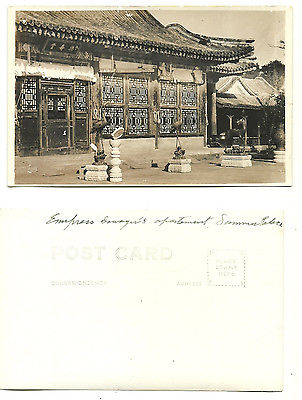 Empress Dowager's apartment Summer Palace
POST CARD
PLACE
STAMP
HERE
CORRESPONDENCE
ADDRESS